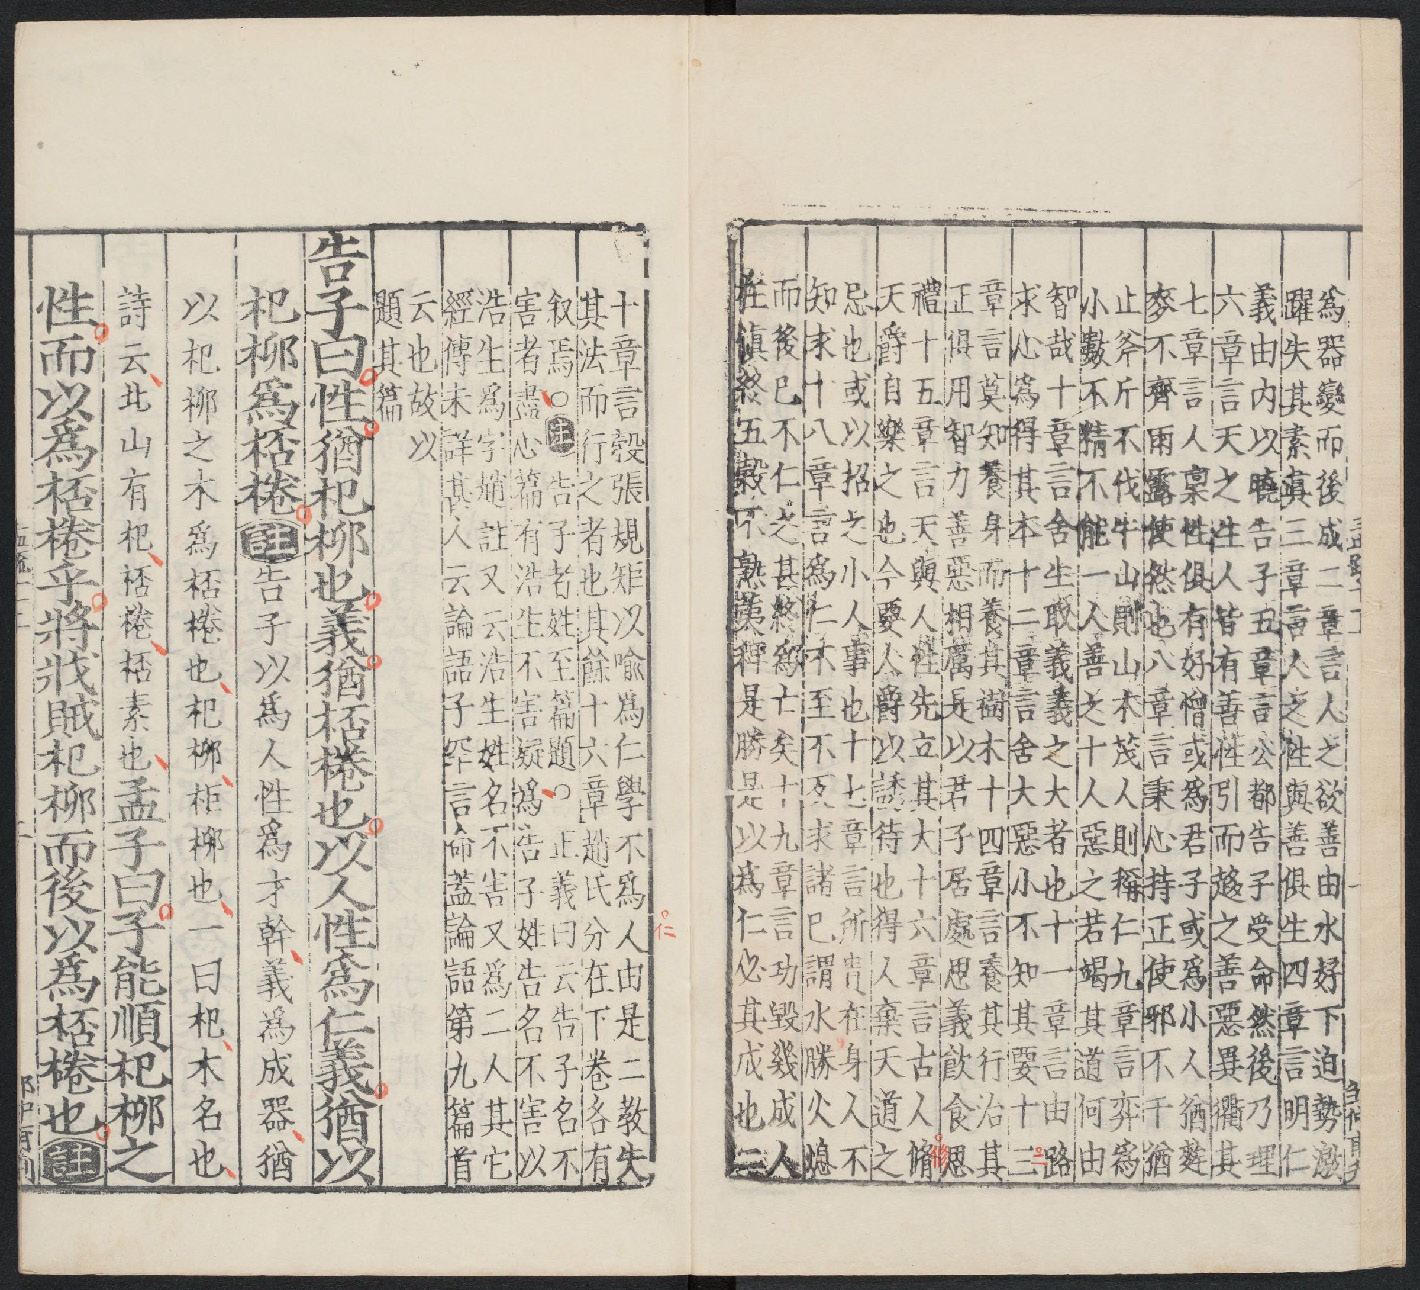 為器變而後成二章言人之欲善由水好下迫勢激
躍失其素真三章言人之性與善俱生四章言明仁
義由內以曉告子五章言公都告子受命然後乃理
六章言天之生人皆有善性引而趨之善惡異衢其
七章言人稟性俱有好憎或為君子或為小人猶麰
麥不齊雨露使然也八章言秉心持正使邪不干猶
止斧斤不伐牛山則山木茂人則稱仁九章言弈為
小數不精不能一人善之十人惡之若竭其道何由
智哉十章言舍生取義義之大者也十一章言由路
求心為得其本十二章言舍大惡小不知其要十三
章言莫知養身而養其樹木十四章言養其行治其
正俱用智力善惡相厲是以君子居處思義飲食思
禮十五章言天與人性先立其大十六章言古人脩
天爵自樂之也今要人爵以誘待也得人棄天道之
忌也或以招之小人事也十七章言所貴在身人不
知求十八章言為仁不至不反求諸己謂水勝火熄
而後已不仁之甚終為亡矣十九章言功毀幾成人
在慎終五穀不熟荑稗是勝是以為仁必其成也二
十章言彀張規矩以喻為仁學不為人由是二教失
其法而行之者也其餘十六章趙氏分在下卷各有
叙焉○註告子者姓至篇題○正義曰云告子名不
害者盡心篇有浩生不害疑為告子姓告名不害以
浩生為字趙註又云浩生姓名不害又為二人其它
經傳未詳其人云論語子罕言命蓋論語第九篇首
云也故以
題其篇
告子曰性猶杞柳也義猶桮棬也以人性為仁義猶以
杞柳為桮棬註告子以為人性為才幹義為成器猶
以杞柳之木為桮棬也杞柳柜柳也一曰杞木名也
詩云北山有杞桮棬桮素也孟子曰子能順杞柳之
性而以為桮棬乎將戕賊杞柳而後以為桮棬也註
仁